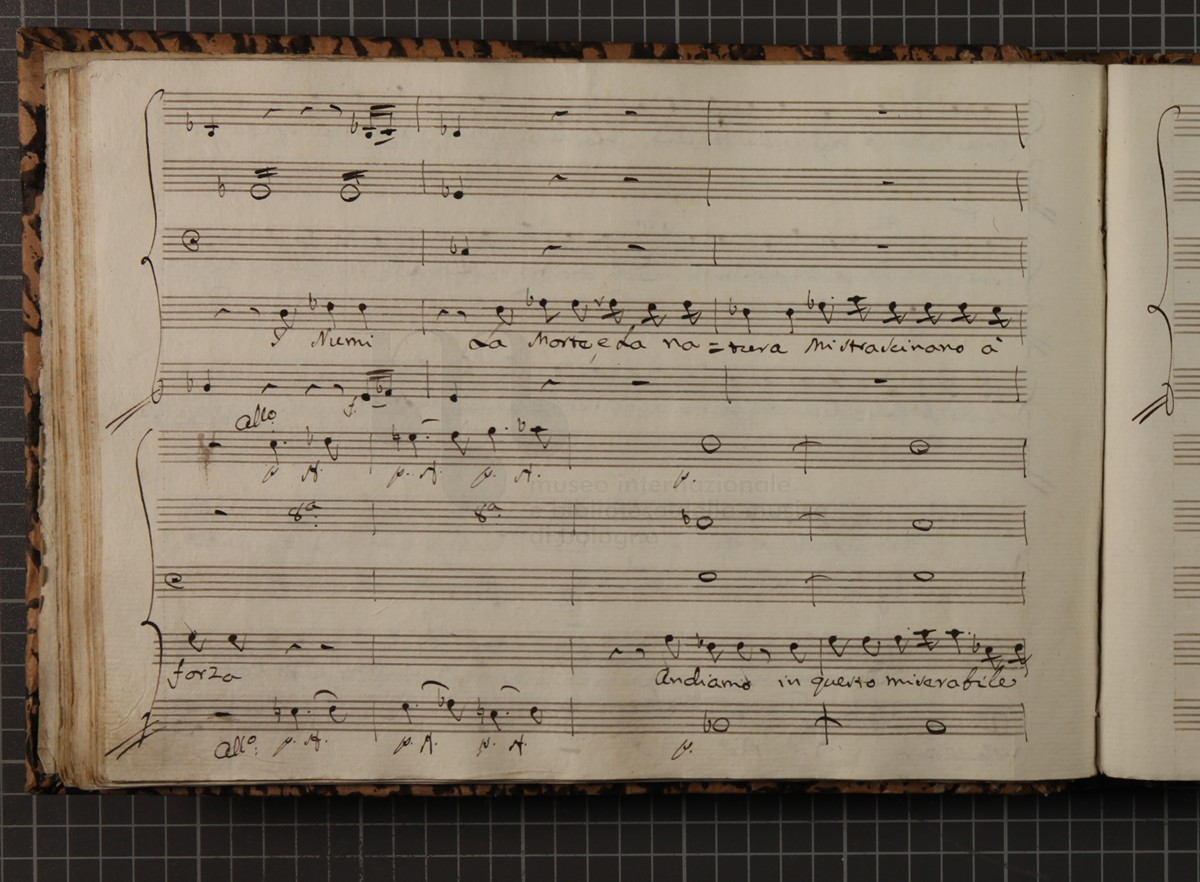 I Numi La Morte, e La na = tura Mi strascinano à
f.
allo
p. f. p. f. p. f.
p.
8ª 8ª
museo internazionale
e biblioteca della musica
di bologna
forza Andiamo in questo miserabile
allo: p. f. p. f. p. f. p.